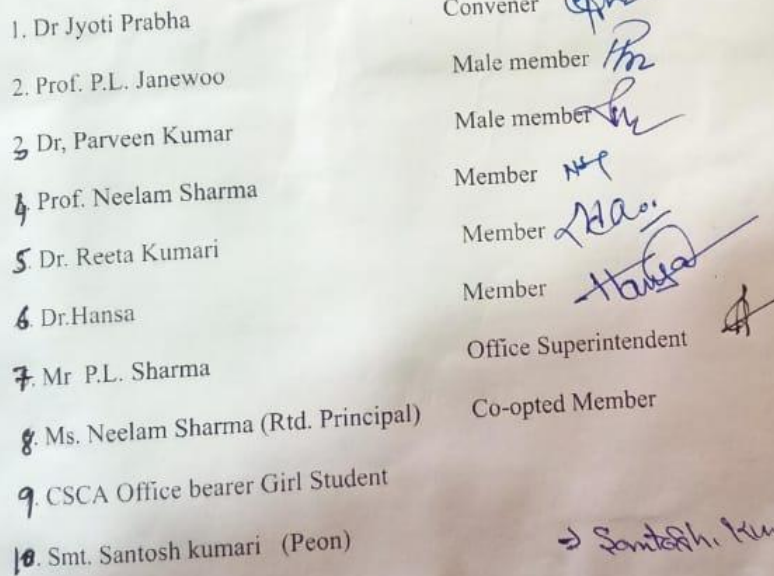 1. Dr Jyoti Prabha Convener
2. Prof. P.L. Janewoo Male member
3 Dr, Parveen Kumar Male member
4. Prof. Neelam Sharma Member
5. Dr. Reeta Kumari Member
6. Dr.Hansa Member Hansa
7. Mr P.L. Sharma Office Superintendent
8. Ms. Neelam Sharma (Rtd. Principal) Co-opted Member
9. CSCA Office bearer Girl Student
10. Smt. Santosh kumari (Peon) → Santosh. Kum